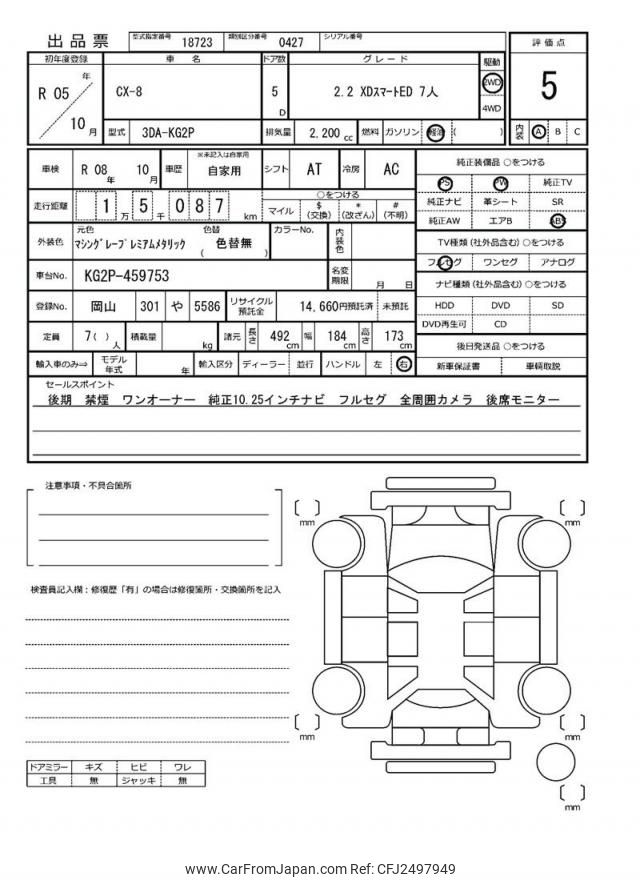 出品票 型式指定番号 18723 類別区分番号 0427 シリアル番号
評価点
5
内装 A B C
初年度登録 車名 ドア数 グレード 駆動
R 05 年 10 月 CX-8 5 D 2.2 XDスマートED 7人 2WD 4WD
型式 3DA-KG2P 排気量 2,200 cc 燃料 ガソリン 軽油 ( )
車検 R 08 年 10 月 車歴 ※未記入は自家用 自家用 シフト AT 冷房 AC
走行距離 1 万 5 千 0 8 7 km
○をつける
マイル $ (交換) * (改ざん) # (不明)
外装色 元色 マシングレープレミアムメタリック 色替 ( 色替無 ) カラーNo. 内装色
車台No. KG2P-459753 名変期限 月 日
登録No. 岡山 301 や 5586 リサイクル預託金 14,660円預託済 未預託
定員 7( ) 人 積載量 kg 諸元 長さ 492 cm 幅 184 cm 高さ 173 cm
輸入車のみ⇒ モデル年式 年 輸入区分 ディーラー 並行 ハンドル 左 右
純正装備品 ○をつける
PS PW 純正TV
純正ナビ 革シート SR
純正AW エアB ABS
TV種類 (社外品含む) ○をつける
フルセグ ワンセグ アナログ
ナビ種類 (社外品含む) ○をつける
HDD DVD SD
DVD再生可 CD
後日発送品 ○をつける
新車保証書 車輌取説
セールスポイント
後期 禁煙 ワンオーナー 純正10.25インチナビ フルセグ 全周囲カメラ 後席モニター
注意事項・不具合箇所
検査員記入欄：修復歴「有」の場合は修復箇所・交換箇所を記入
ドアミラー キズ ヒビ ワレ
工具 無 ジャッキ 無
mm
mm
mm
mm
mm
www.CarFromJapan.com Ref: CFJ2497949